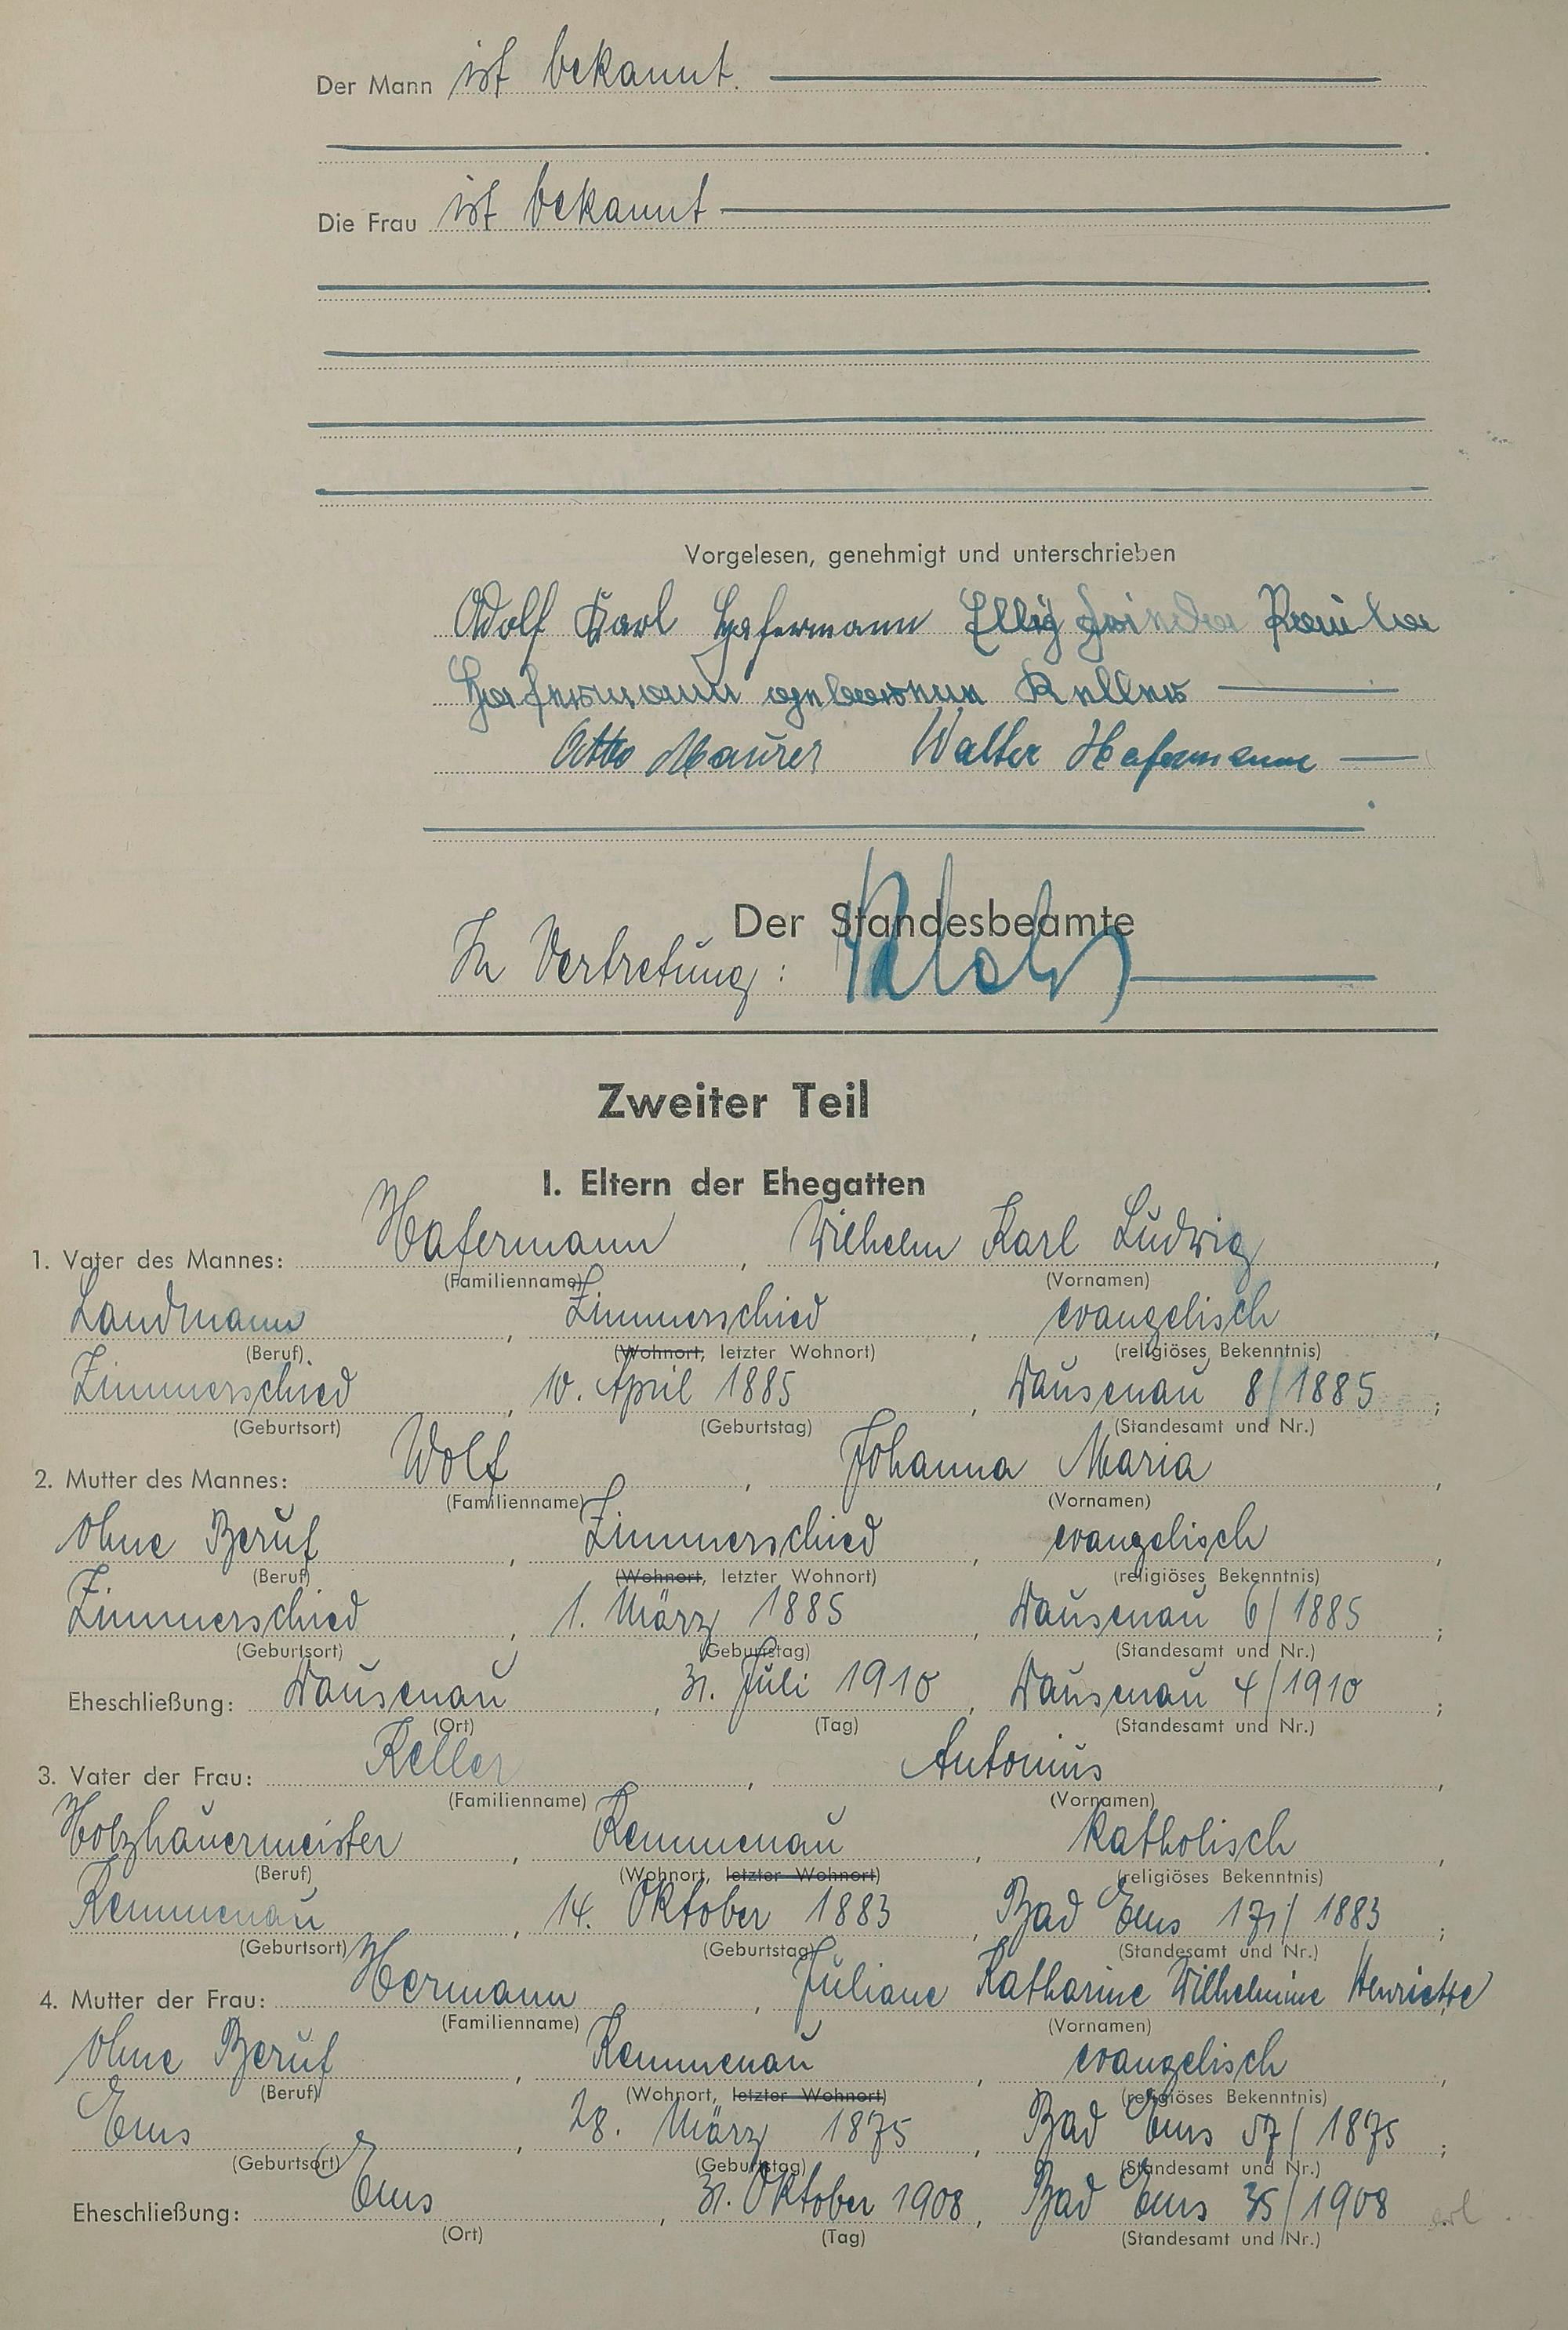 Der Mann ist bekannt.
Die Frau ist bekannt
Vorgelesen, genehmigt und unterschrieben
Adolf Karl Hafermann
Hafermann geborene Keller
Otto Maurer Walter Hafermann
Der Standesbeamte
In Vertretung:
Zweiter Teil
I. Eltern der Ehegatten
1. Vater des Mannes: Hafermann, Wilhelm Karl Ludwig,
(Familienname) (Vornamen)
Landmann, Zimmerschied, evangelisch,
(Beruf) (Wohnort, letzter Wohnort) (religiöses Bekenntnis)
Zimmerschied, 10. April 1885, Dausenau 8/1885;
(Geburtsort) (Geburtstag) (Standesamt und Nr.)
2. Mutter des Mannes: Wolf, Johanna Maria,
(Familienname) (Vornamen)
ohne Beruf, Zimmerschied, evangelisch,
(Beruf) (Wohnort, letzter Wohnort) (religiöses Bekenntnis)
Zimmerschied, 1. März 1885, Dausenau 6/1885;
(Geburtsort) (Geburtstag) (Standesamt und Nr.)
Eheschließung: Dausenau, 31. Juli 1910, Dausenau 4/1910;
(Ort) (Tag) (Standesamt und Nr.)
3. Vater der Frau: Keller, Antonius,
(Familienname) (Vornamen)
Holzhauermeister, Kemmenau, katholisch,
(Beruf) (Wohnort, letzter Wohnort) (religiöses Bekenntnis)
Kemmenau, 14. Oktober 1883, Bad Ems 171/1883;
(Geburtsort) (Geburtstag) (Standesamt und Nr.)
4. Mutter der Frau: Hermann, Juliane Katharine Wilhelmine Henriette
(Familienname) (Vornamen)
ohne Beruf, Kemmenau, evangelisch,
(Beruf) (Wohnort, letzter Wohnort) (religiöses Bekenntnis)
Ems, 28. März 1875, Bad Ems 57/1875;
(Geburtsort) (Geburtstag) (Standesamt und Nr.)
Eheschließung: Ems, 31. Oktober 1908, Bad Ems 35/1908
(Ort) (Tag) (Standesamt und Nr.)